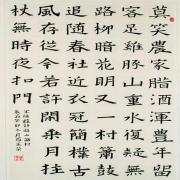 莫笑農家腊酒渾豐年留
客足雞豚山重水複疑無
路柳暗花明又一村簫鼓
追随春社近衣冠簡樸古
風存從今若許閑乘月拄
杖無時夜扣門